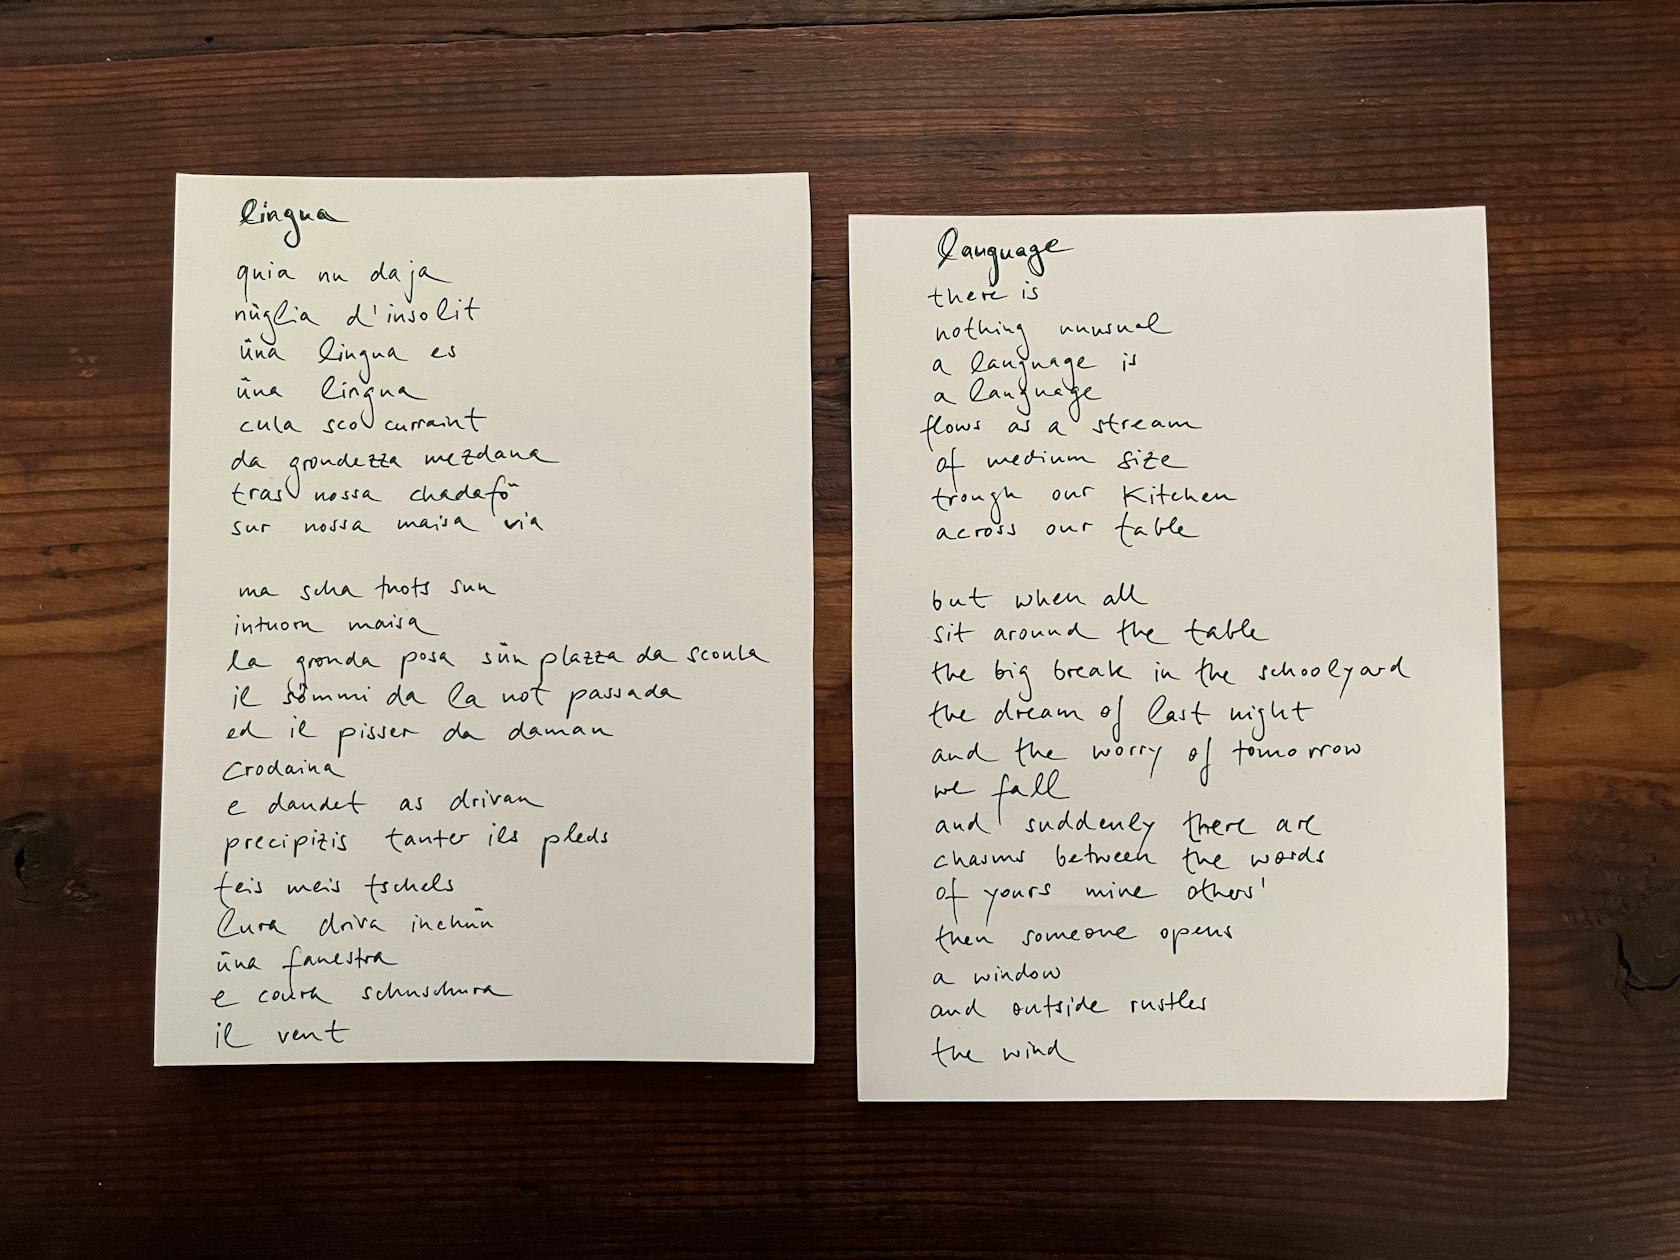 lingua
quia nu daja
nüglia d'insolit
üna lingua es
üna lingua
cula sco curraint
da grondezza mezdana
tras nossa chadafö
sur nossa maisa via
ma scha tuots sun
intuorn maisa
la gronda posa sün plazza da scoula
il sömmi da la not passada
ed il pisser da daman
crodaina
e dandet as drivan
precipizis tanter ils pleds
teis meis tschels
lura driva inchün
üna fanestra
e coura schuschura
il vent
language
there is
nothing unusual
a language is
a language
flows as a stream
of medium size
trough our kitchen
across our table
but when all
sit around the table
the big break in the schoolyard
the dream of last night
and the worry of tomorrow
we fall
and suddenly there are
chasms between the words
of yours mine others'
then someone opens
a window
and outside rustles
the wind